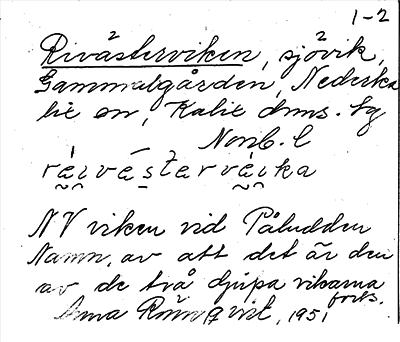 1-2
Rivästerviken, sjövik,
Gammalgården, Nederka
lix sn, Kalix dms. tg
Norrb. l
NV viken vid Påludden
Namn, av att det är den
av de två djupa vikarna
forts.
Anna Rönnqvist, 1951